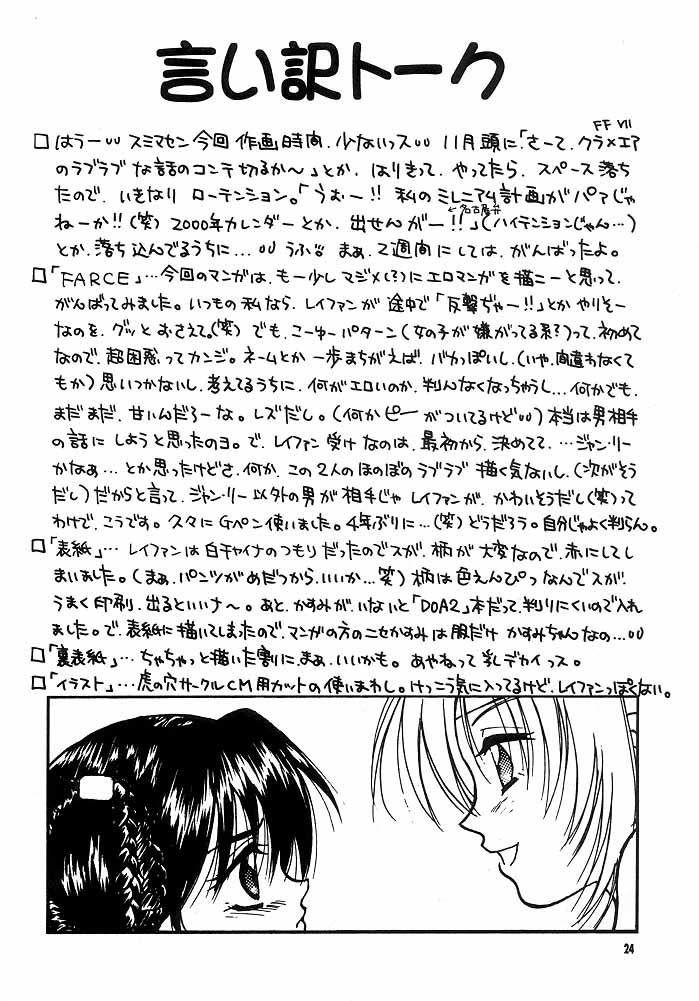 言い訳トーク
FF VII
□はうーυυ スミマセン今回 作画時間、少ないっスυυ 11月頭に「さーて、クラ×エア
のラブラブな話のコンテ切るか〜」とか、はりきって、やってたら、スペース落ち
たので、いきなり ローテンション。「うおー!! 私のミレニアム計画がパァじゃ
ねーか!!(笑) 2000年カレンダーとか、出せんがー!!」(ハイテンションじゃん…)
←名古屋弁
とか、落ち込んでるうちに…υυ うふ まぁ、2週間にしては、がんばったよ。
□「FARCE」…今回のマンガは、もー少しマジメ(?)にエロマンガを描こーと思って、
がんばってみました。いつもの私なら、レイファンが途中で「反撃ぢゃー!!」とかやりそー
なのを、グッとおさえて。(笑) でも、こーゆーパターン(女の子が嫌がってる系?)って、初めて
なので、超困惑ってカンジ。ネームとか 一歩まちがえば、バカっぽいし、(いや、間違わなくて
もか)思いつかないし、考えてるうちに、何がエロいのか、判んなくなっちゃうし…何かでも、
まだまだ、甘いんだろーな。レズだし。(何かピーがついてるけどυυ)本当は男相手
の話にしようと思ったのヨ。で、レイファン受けなのは、最初から、決めてて、…ジャン・リー
かなぁ…とか思ったけどさ、何か、この2人のほのぼのラブラブ 描く気ないし、(次がそう
だし)だからと言って、ジャン・リー以外の男が相手じゃ レイファンが、かわいそうだし(笑)って
わけで、こうです。久々にGペン使いました。4年ぶりに…(笑)どうだろう。自分じゃよく判らん。
□「表紙」…レイファンは白チャイナのつもりだったのでスが、柄が大変なので、赤にしてし
まいました。(まぁ、パンツがめだつから、いいか…笑)柄は色えんぴつなんでスが、
うまく印刷、出るといいナ〜。あと、かすみが、いないと「DOA2」本だって、判りにくいので入れ
ました。で、表紙に描いてしまったので、マンガの方のニセかすみは服だけ かすみちゃんなの…υυ
□「裏表紙」…ちゃちゃっと描いた割に、まぁ、いいかも。あやねって乳デカイっス。
□「イラスト」…虎の穴サークルCM用カットの使いまわし。けっこう気に入ってるけど、レイファンっぽくない。
24